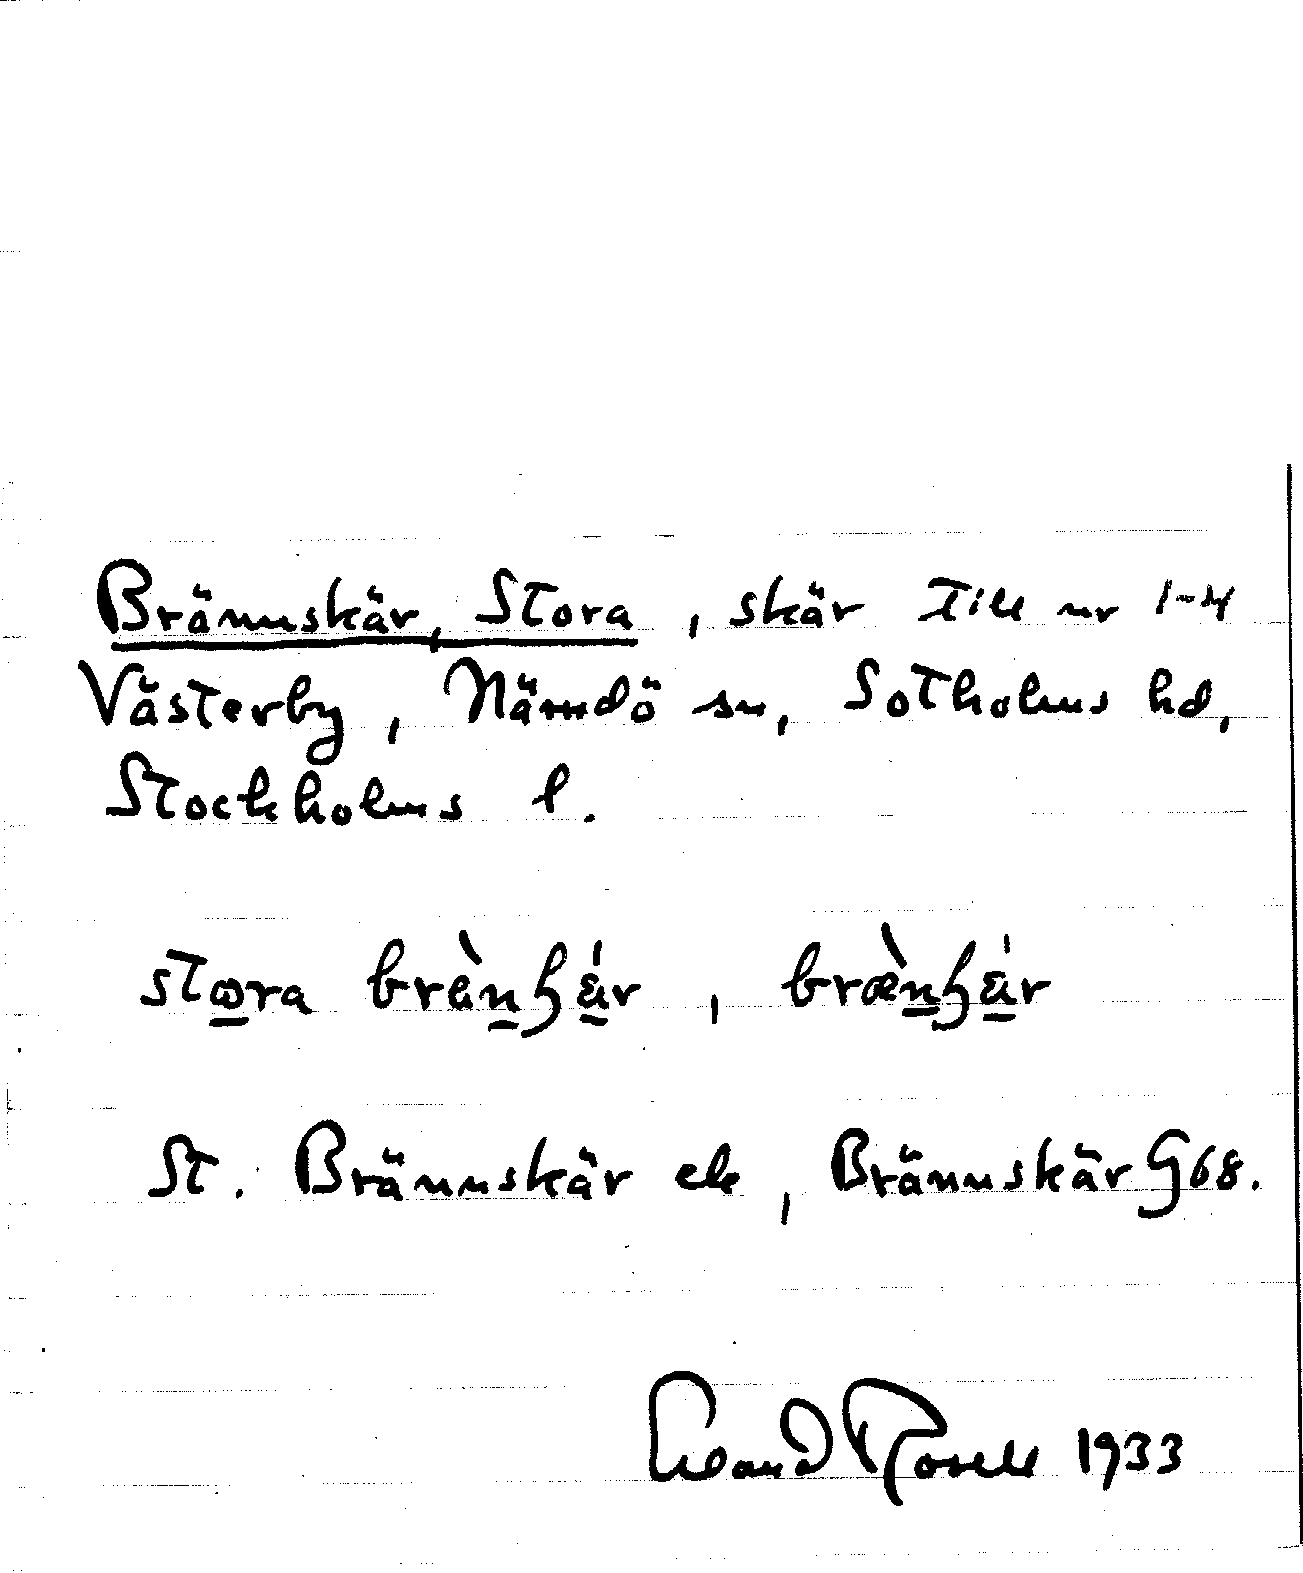 Brännskär, Stora, skär till nr 1-4
Västerby, Nämdö sn, Sotholms hd,
Stockholms l.
stωra brὲnʃǽr, brænʃǽr
St. Brännskär ek, Brännskär G68.
Evand Rosell 1933